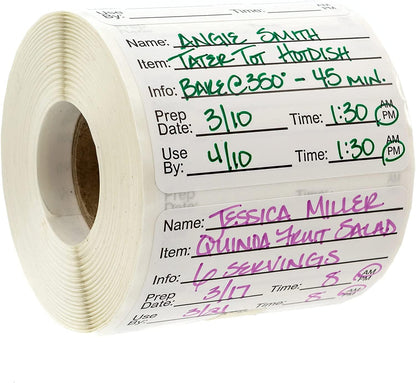 Use
By: Time: AM PM
Name: ANGIE SMITH
Item: TATER TOT HOTDISH
Info: BAKE @ 350° - 45 MIN.
Prep Date: 3/10 Time: 1:30 AM PM
Use By: 4/10 Time: 1:30 AM PM
Prep
Date: Time:
Name: JESSICA MILLER
Item: QUINOA FRUIT SALAD
Info: 6 SERVINGS
Prep Date: 3/17 Time: 8 AM PM
Use By: 3/21 Time: 8 AM PM